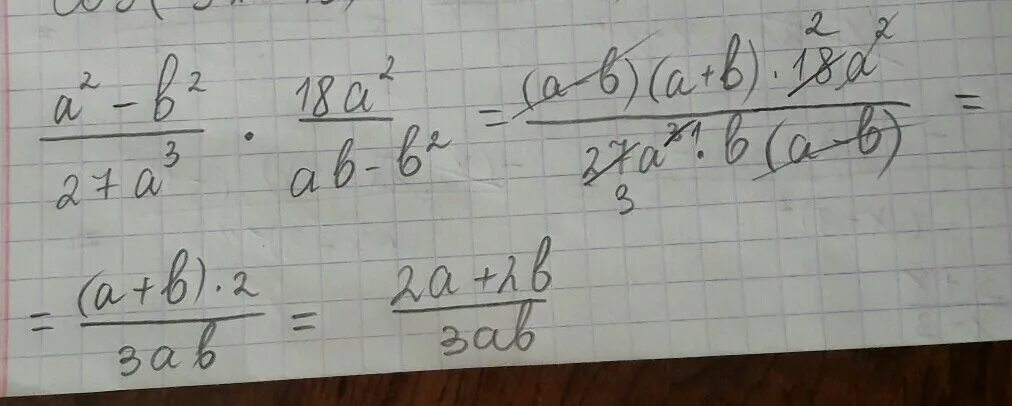 (a² − b²)/(27a³) · (18a²)/(ab − b²) = ((a−b)(a+b) · 18² a²)/(27₃ a³¹ · b(a−b)) =
= ((a+b)·2)/(3ab) = (2a+2b)/(3ab)